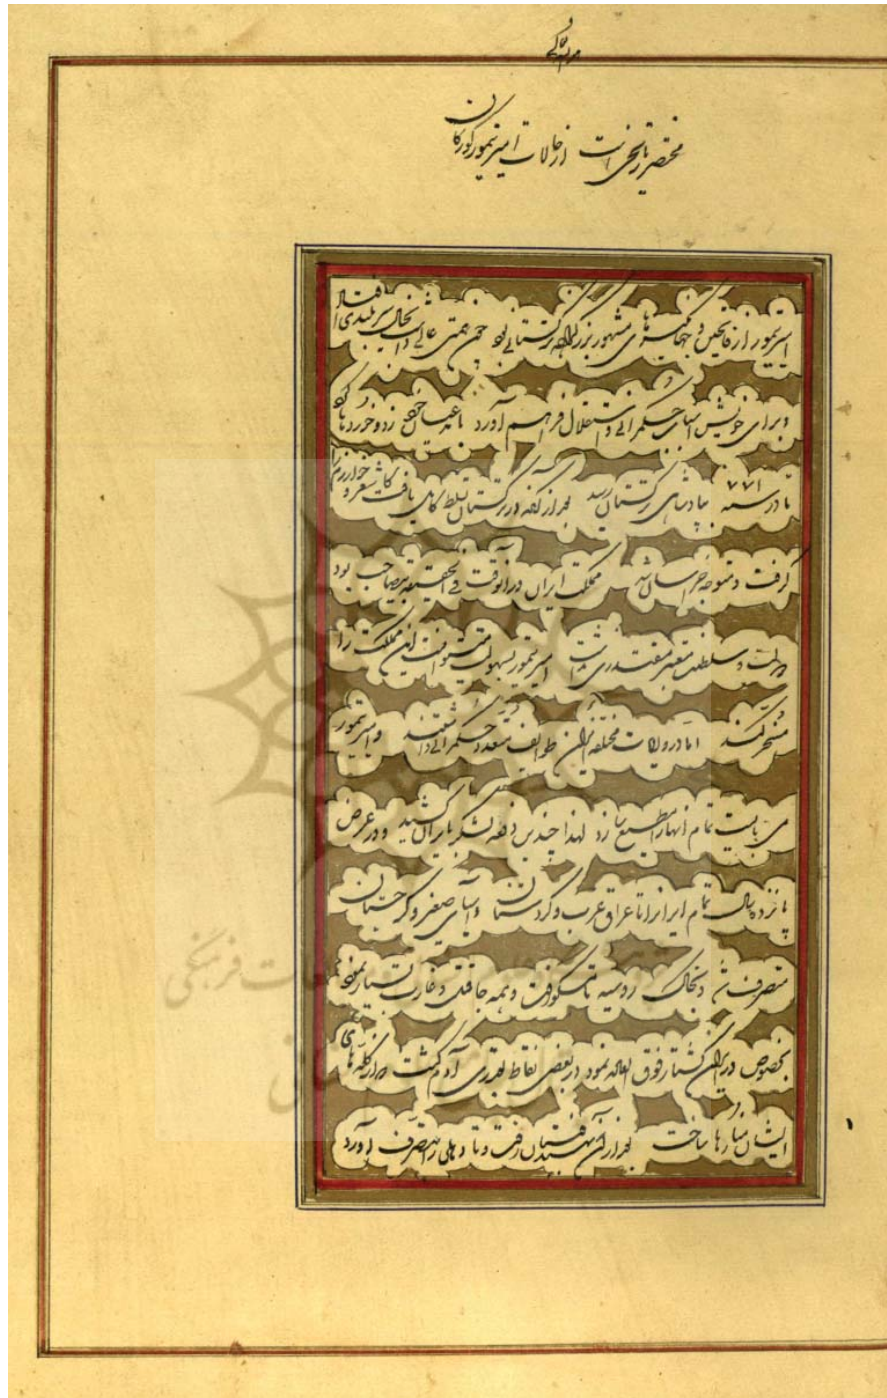 مختصر تاریخی است از حالات امیر تیمور گورکان
امیر تیمور از فاتحین و جهانگیرهای مشهور بزرگ ترکستانی بود چون همتی عالی داشت بخیال سربلندی افتاد
و برای خویش اسباب حکمرانی و استقلال فراهم آورد با مدعیان خود زد و خوردها کرد
تا در سنه ۷۷۱ بپادشاهی ترکستان رسید بعد از آنکه در ترکستان تسلط کامل یافت کاشغر و خوارزم را
گرفت و متوجه خراسان شد مملکت ایران در آنوقت فی الحقیقه بیصاحب بود
دولت و سلطنت معتبر مقتدری نداشت امیر تیمور بسهولت میتوانست این مملکت را
مسخر کند اما در ولایات مختلفه ایران طوایف متعدد حکمرانی داشتند و امیر تیمور
می بایست تمام آنها را مطیع سازد لهذا چندین دفعه لشکر بایران کشید و در عرض
پانزده سال تمام ایران را تا عراق عرب و کردستان و آسیای صغیر و گرجستان
متصرف شد و بخاک روسیه تا مسکو رفت و همه جا قتل و غارت بسیار نمود
بخصوص در ایران کشتار فوق العاده نمود در بعضی نقاط بقدری آدم کشت که از کله های
ایشان منارها ساخت بعد از آن بهندوستان رفت و تا دهلی را بتصرف در آورد
۱